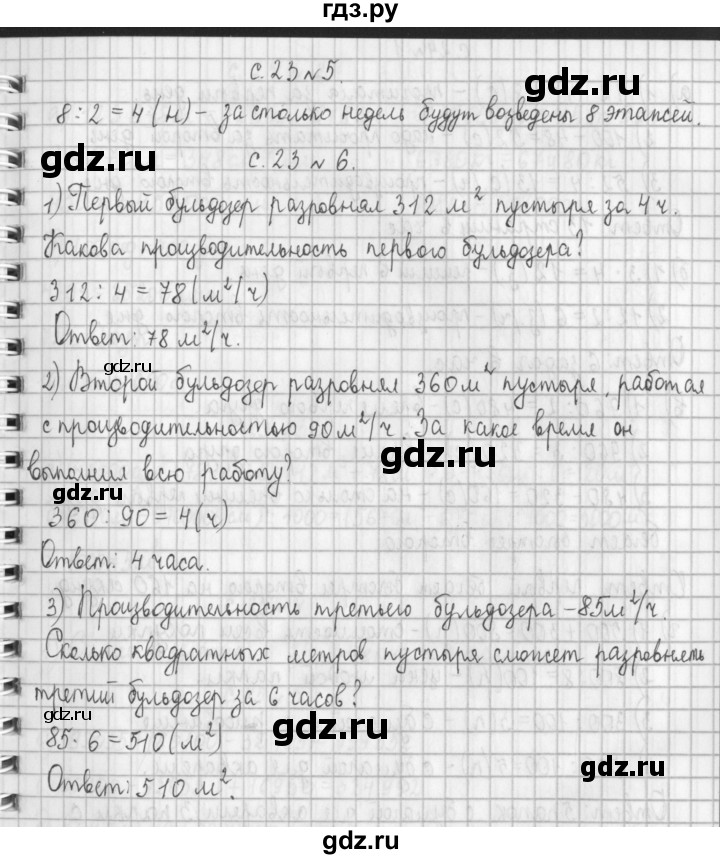 гдз.ру
с. 23 № 5.
8 : 2 = 4 (н) – за столько недель будут возведены 8 этажей.
gdz.ru
с. 23 № 6.
gdz.ru
1) Первый бульдозер разровнял 312 м² пустыря за 4 ч.
Какова производительность первого бульдозера?
312 : 4 = 78 (м²/ч)
gdz.ru
Ответ: 78 м²/ч.
gdz.ru
2) Второй бульдозер разровнял 360 м² пустыря, работая
с производительностью 90 м²/ч. За какое время он
gdz.ru
выполнил всю работу?
gdz.ru
360 : 90 = 4 (ч)
Ответ: 4 часа.
gdz.ru
3) Производительность третьего бульдозера – 85 м²/ч.
Сколько квадратных метров пустыря сможет разровнять
третий бульдозер за 6 часов?
gdz.ru
85 · 6 = 510 (м²)
gdz.ru
gdz.ru
Ответ: 510 м².
gdz.ru